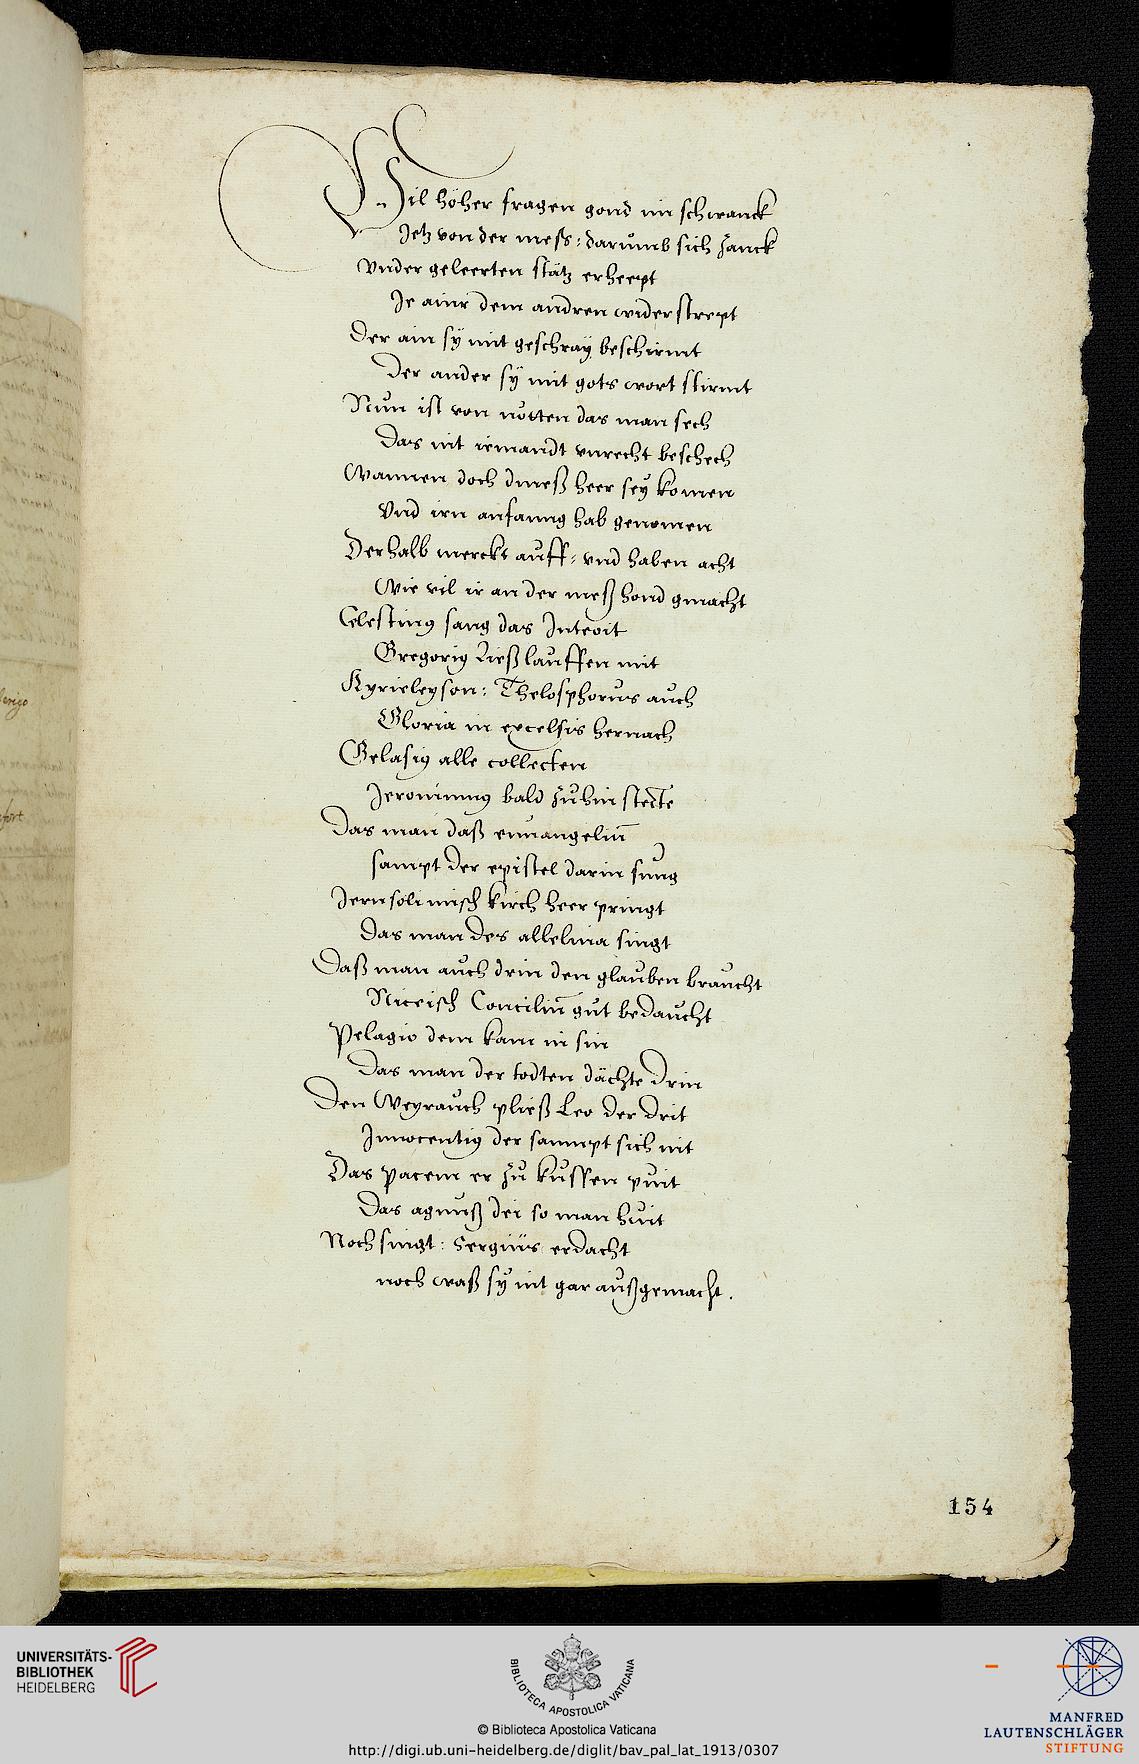 Vil höher fragen gond im schwanck
Jetz von der mess: darumb sich zanck
Vnder geleerten stätz erheept
Je ainr dem andren widerstrept
Der ain sy mit geschray beschirmt
Der ander sÿ mit gots wort stirmt
Nun ist von nötten das man sech
Das nit iemandt vnrecht beschech
Wannen doch dmeß heer seÿ komen
Vnd irn anfanng hab genomen
Derhalb merckt auff: vnd haben acht
Wie vil ir an der meß hond gmacht
Celestinꝰ sang das Introit
Gregoriꝰ ließ lauffen mit
Kyrieleyson: Thelosphorus auch
Gloria in excelsis hernach
Gelasiꝰ alle collecten
Jeronimꝰ bald zuhin steckte
Das man daß euuangeliū
sampt der epistel darin sung
Jerusolimisch kirch heer pringt
Das man des alleluia singt
Daß man auch drin den glauben braucht
Niceisch Conciliū gut bedaucht
Pelagio dem kam in sin
Das man der todten dächte drin
Den Weyrauch pließ Leo der drit
Innocentiꝰ der sampt sich nit
Das pacem er zu kussen puit
Das agnuß dei so man huit
Noch singt: Sergius erdacht
noch waß sy nit gar außgemacht.
154
UNIVERSITÄTS-
BIBLIOTHEK
HEIDELBERG
BIBLIOTECA APOSTOLICA VATICANA
© Biblioteca Apostolica Vaticana
http://digi.ub.uni-heidelberg.de/diglit/bav_pal_lat_1913/0307
MANFRED
LAUTENSCHLÄGER
STIFTUNG